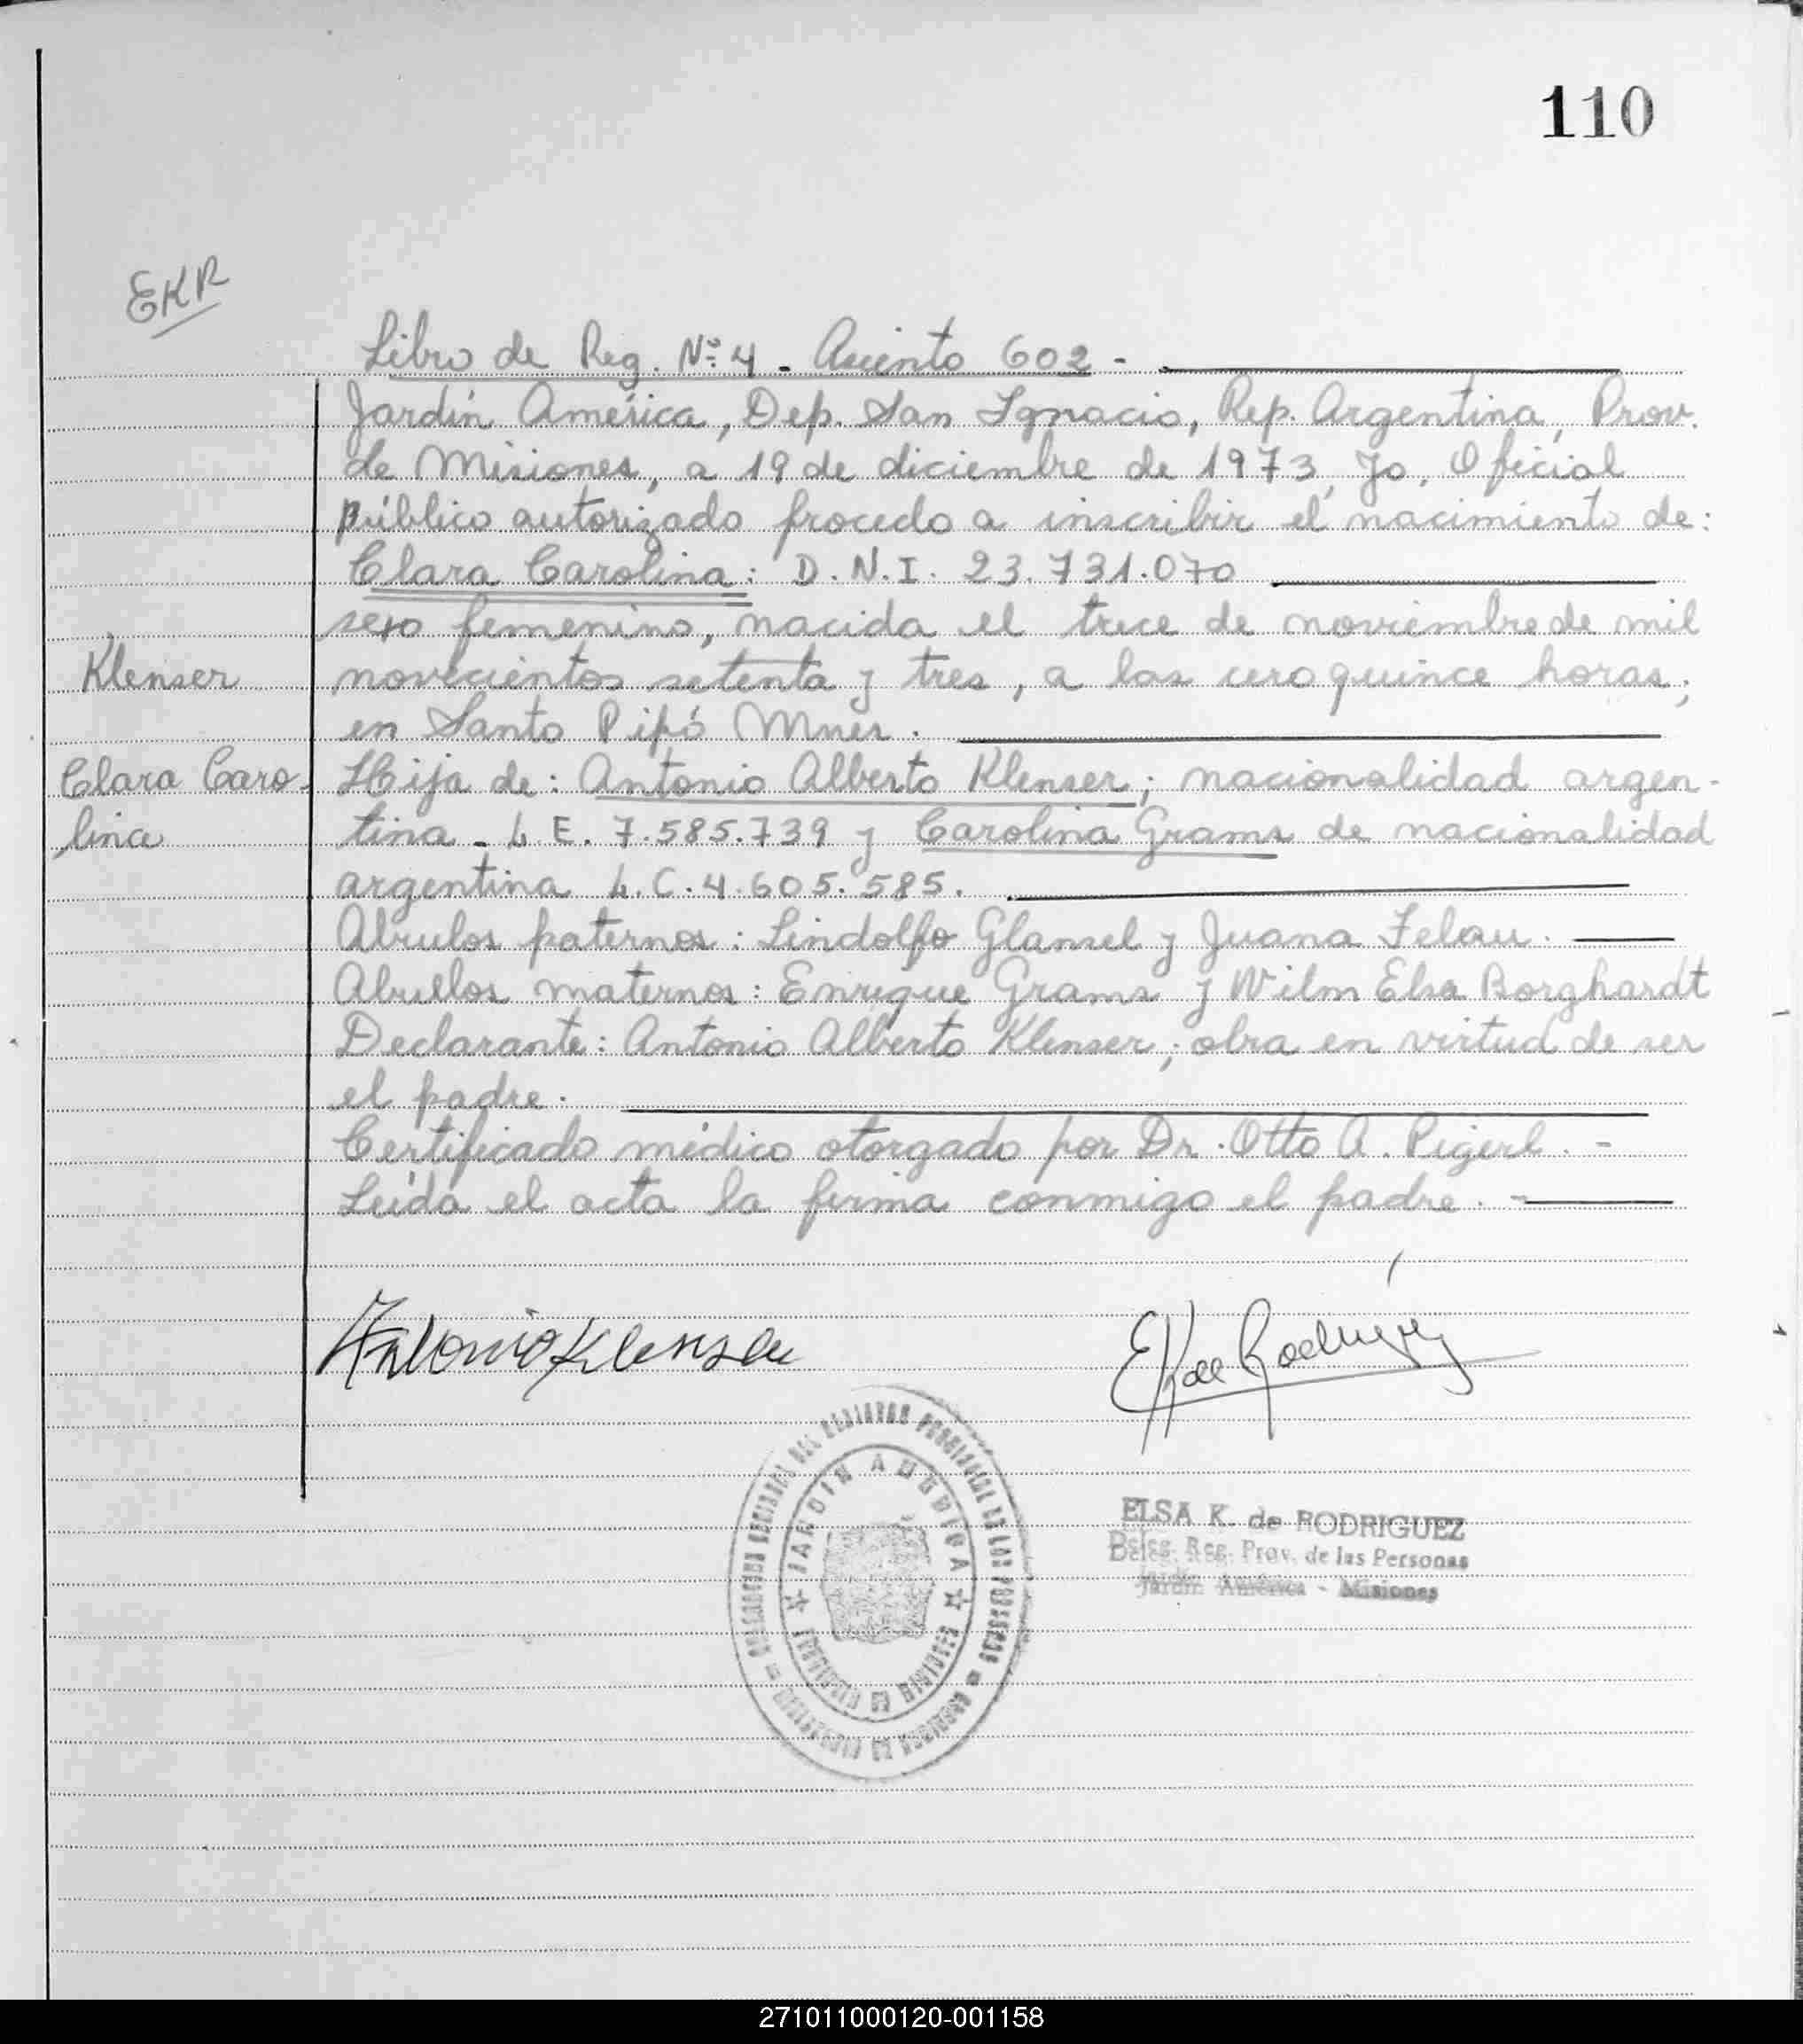 110
EKR
Libro de Reg. Nº 4 - Asiento 602 -
Jardín América, Dep. San Ignacio, Rep. Argentina, Prov.
de Misiones, a 19 de diciembre de 1973, Yo, Oficial
Público autorizado procedo a inscribir el nacimiento de:
Clara Carolina: D.N.I. 23.731.070
sexo femenino, nacida el trece de noviembre de mil
Klenser
novecientos setenta y tres, a las cero quince horas;
en Santo Pipó Mnes.
Clara Caro-
lina
Hija de: Antonio Alberto Klenser; nacionalidad argen-
tina - L.E. 7.585.739 y Carolina Grams de nacionalidad
argentina L.C. 4.605.585.
Abuelos paternos: Lindolfo Glansel y Juana Felau.
Abuelos maternos: Enrique Grams y Wilm Elsa Borghardt
Declarante: Antonio Alberto Klenser; obra en virtud de ser
el padre.
Certificado médico otorgado por Dr. Otto A. Pigerl. -
Leída el acta la firma conmigo el padre. -
Antonio Klenser
EK de Rodríguez
JARDIN AMERICA
PROVINCIA DE MISIONES
ELSA K. de RODRIGUEZ
Deleg. Reg. Prov. de las Personas
Jardín América - Misiones
271011000120-001158